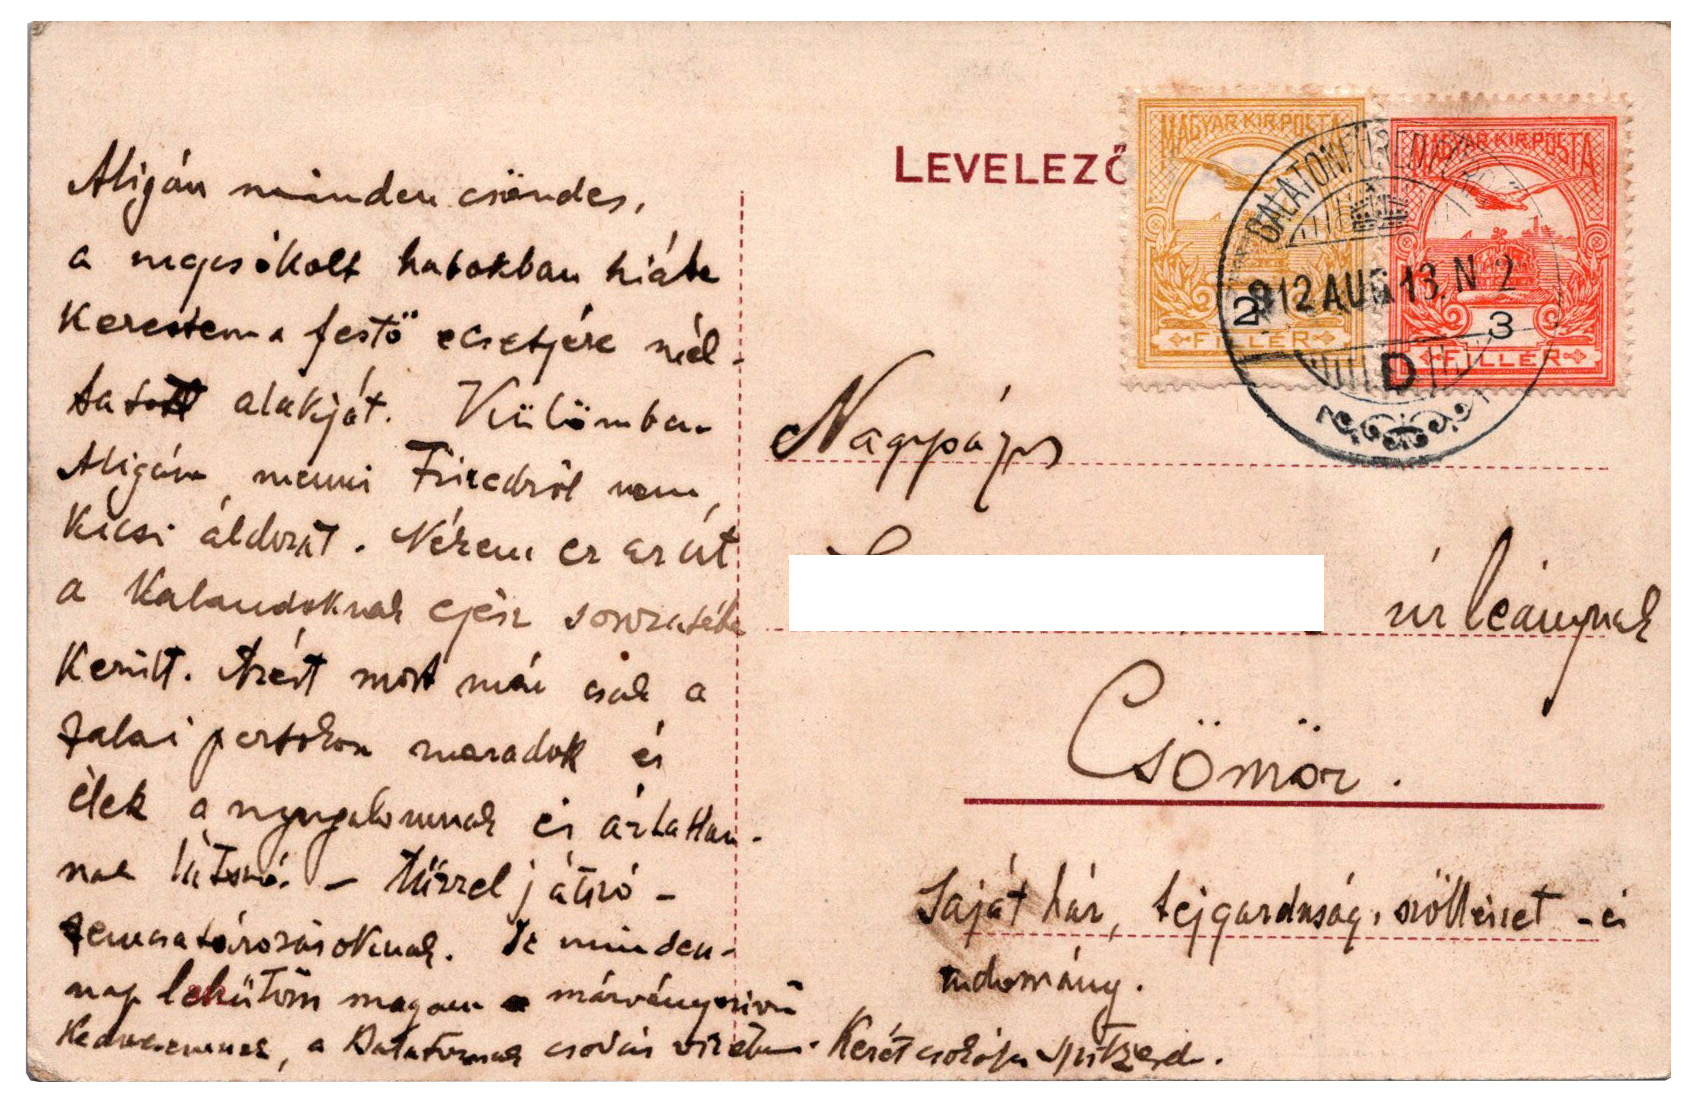 LEVELEZŐ
MAGYAR KIR. POSTA
MAGYAR KIR. POSTA
BALATONFÜRED
912 AUG 13. N 2
2
3
FILLÉR
FILLÉR
D
Aligán minden csöndes,
a megcsókolt habokban hiába
kerestem a festő ecsetjére mél-
tatott alakját. Külömben
Aligára menni Füredről nem
kicsi áldozat. Nékem ez az út
a kalandoknak egész sorozatába
került. Azért most már csak a
zalai partokon maradok és
élek a nyugalomnak és ártatlan-
nak látszó - tűzzel játszó -
Is minden-
nap lehűtöm magam a márványszivű
kedvesemnek, a Balatonnak csodás vizében.
Kezét csókolja
Nagyságos
úrleánynak
Csömör.
Saját ház, tejgazdaság, szőllészet - és
tudomány.